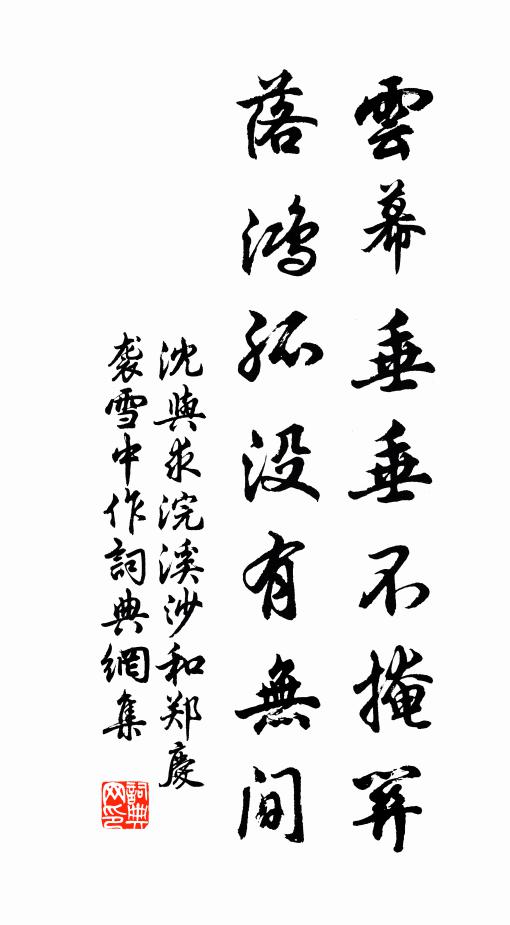 雲幕垂垂不掩關
落鸿孤没有無间
沈與求浣溪沙和郑慶
袭雪中作詞典網集
詞典网印